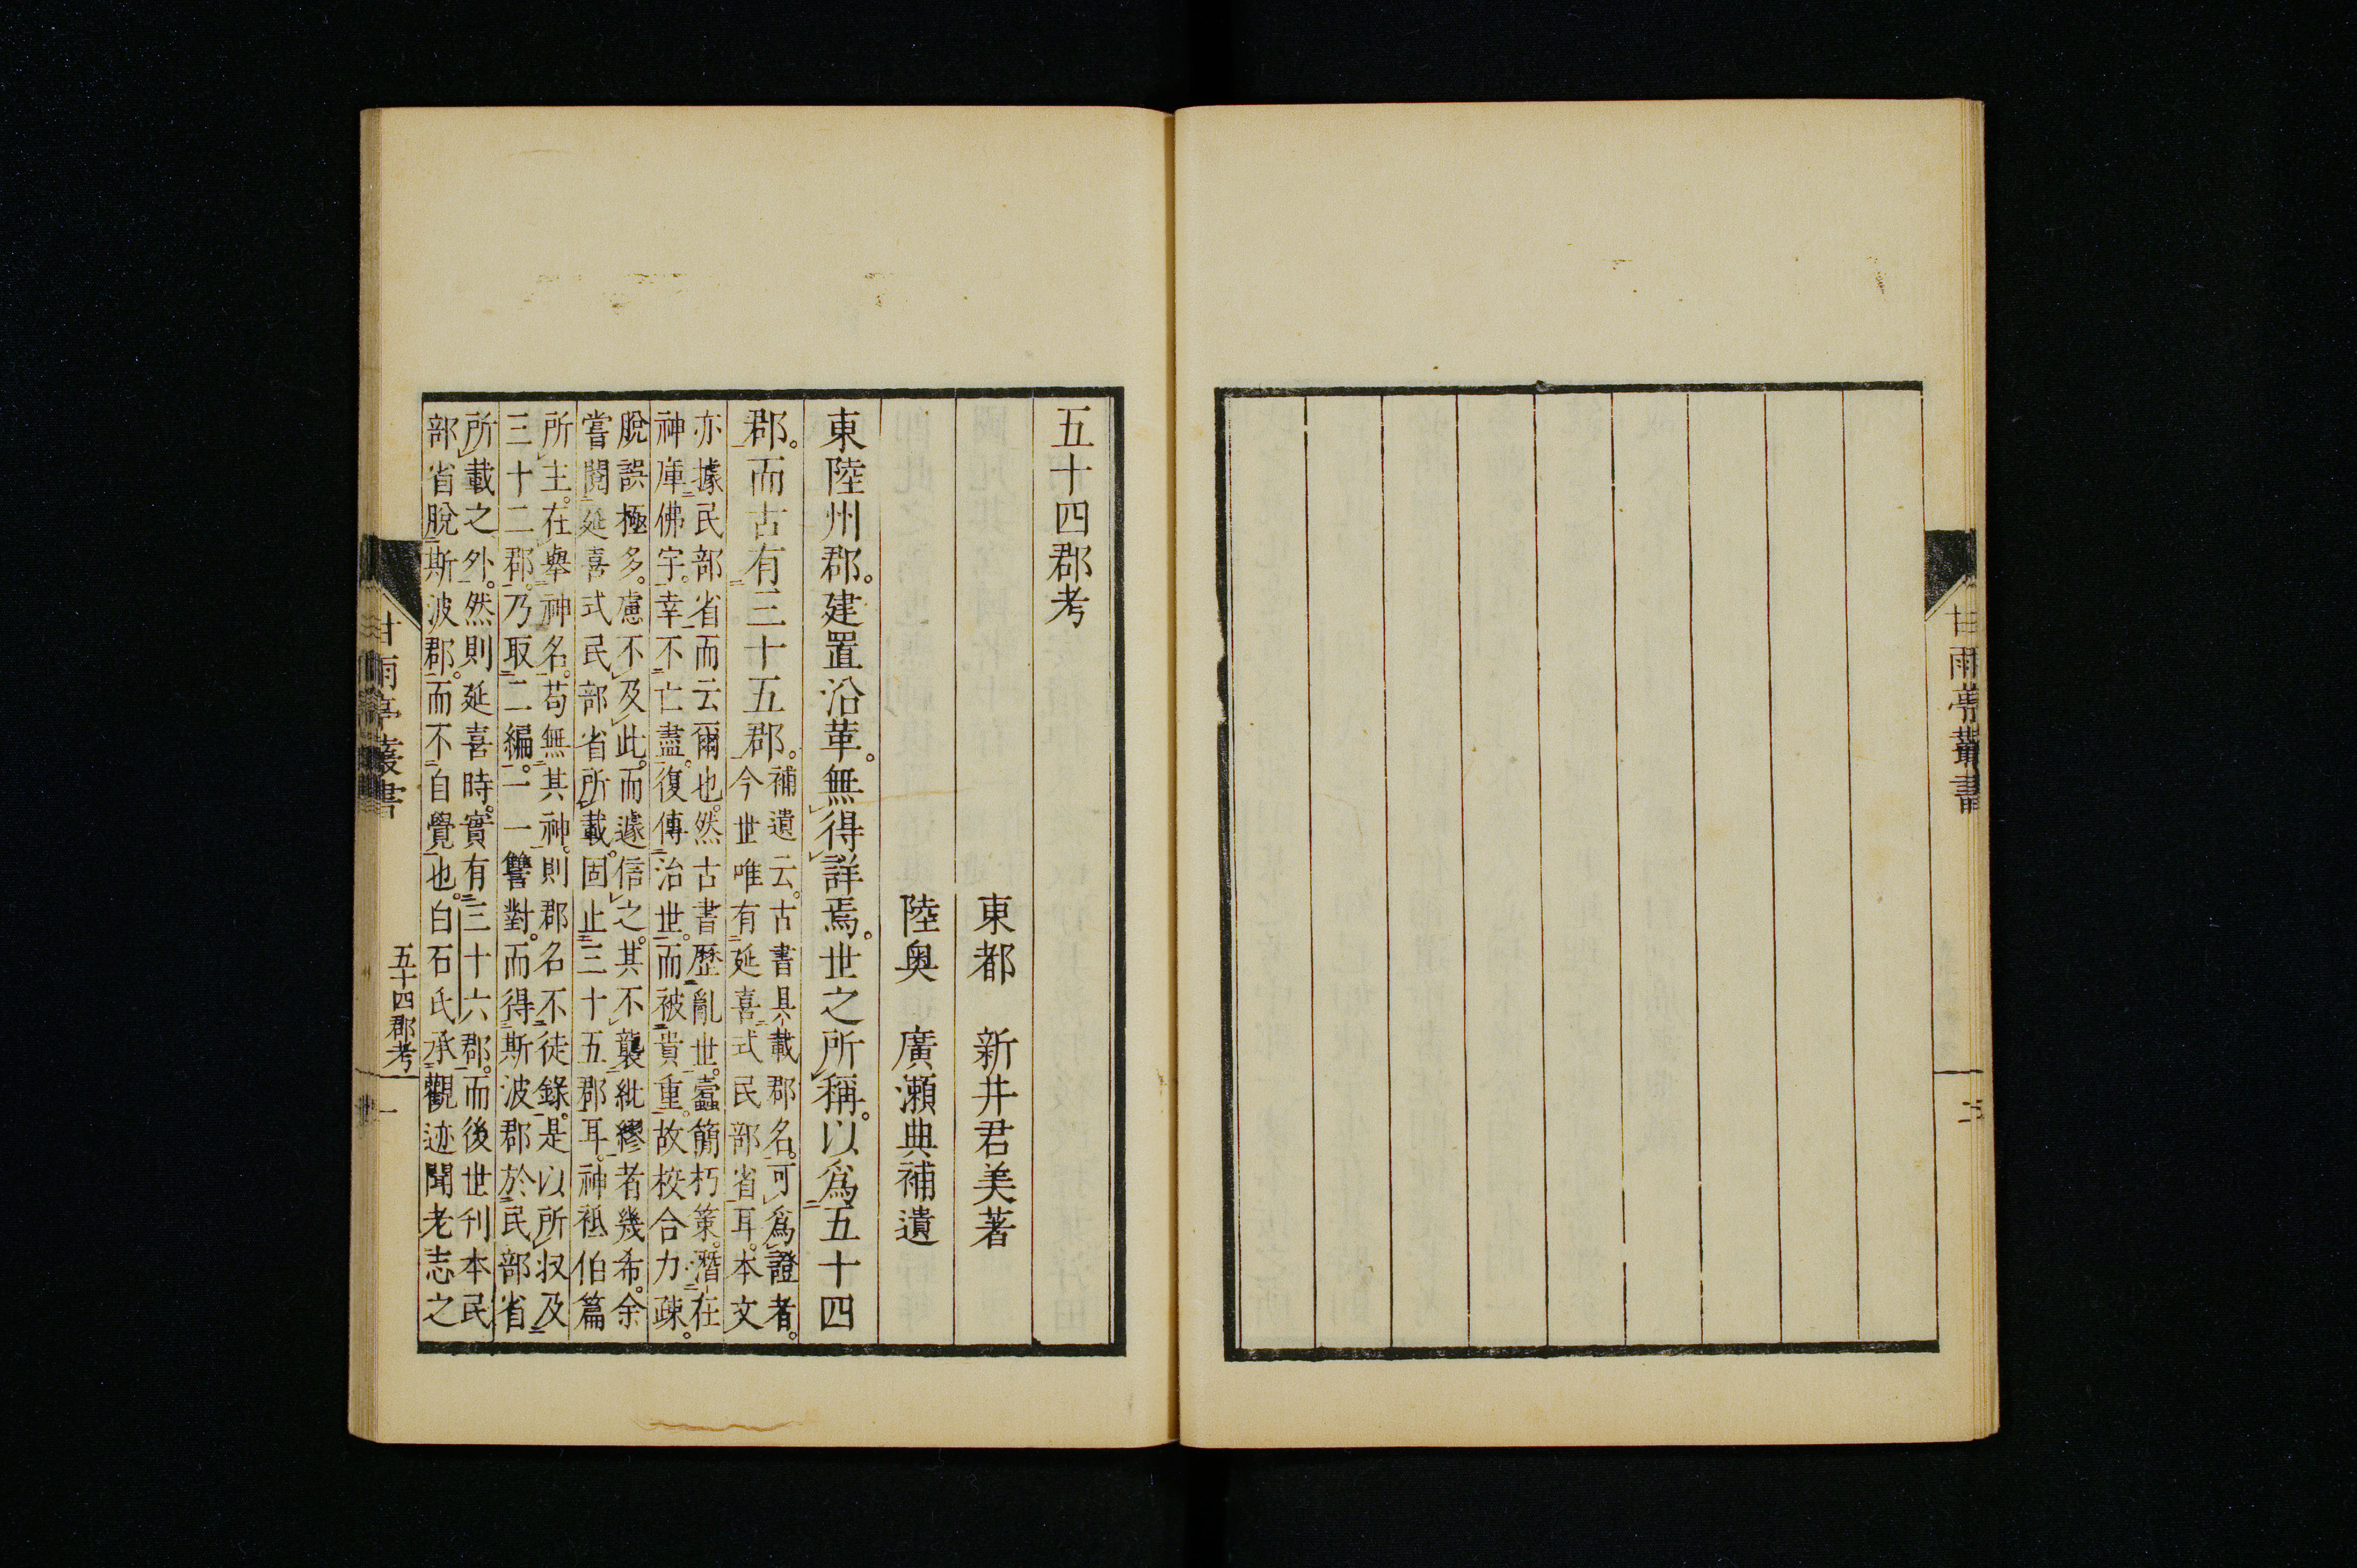 甘雨亭叢書
五十四郡考
東都　新井君美著
陸奥　廣瀬典補遺
東陸州郡。建置沿革。無得詳焉。世之所稱。以爲五十四
郡。而古有三十五郡。
補遺云。古書具載郡名。可爲證者。
今世唯有延喜式民部省耳。本文
亦據民部省而云爾也。然古書歴亂世。蠹簡朽策。潛在
神庫佛宇。幸不亡盡。復傳治世。而被貴重。故校合力疎。
脫誤極多。慮不及此。而遽信之。其不襲紕繆者幾希。余
嘗閲延喜式民部省所載。固止三十五郡耳。神祗伯篇
所主。在舉神名。苟無其神。則郡名不徒錄。是以所収及
三十二郡。乃取二編。一一讐對。而得斯波郡於民部省
所載之外。然則延喜時。實有三十六郡。而後世刊本民
部省脫斯波郡。而不自覺也。白石氏承觀迹聞老志之
甘雨亭叢書
五十四郡考
一